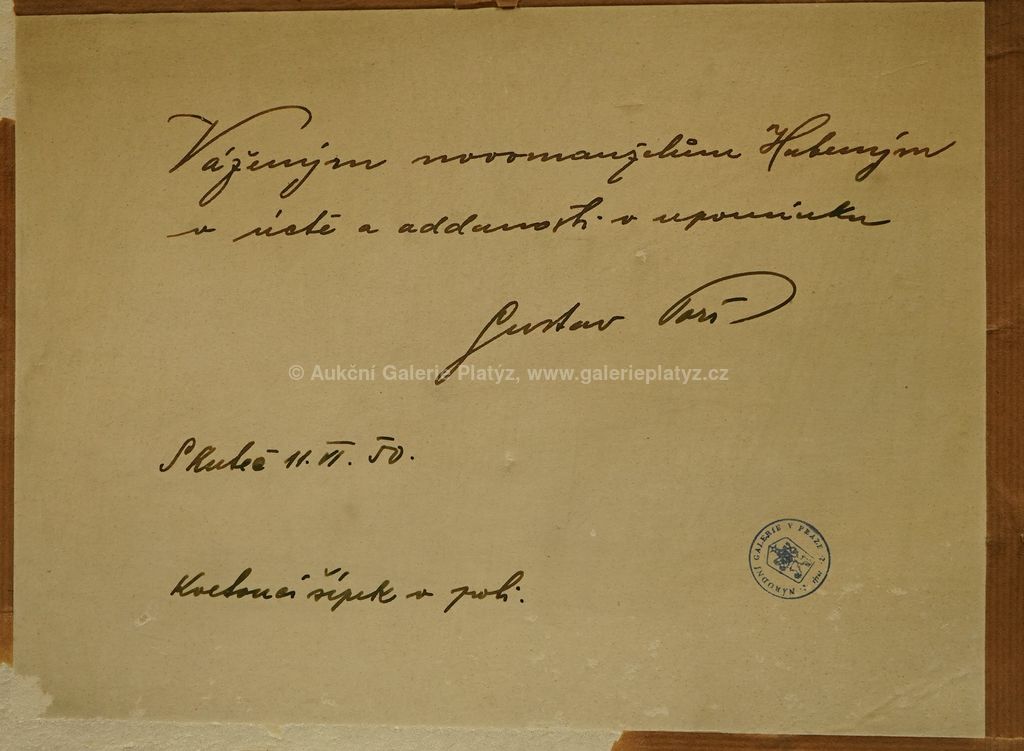 Váženým novomanželům Hubeným
v úctě a oddanosti v upomínku
Gustav Porš
© Aukční Galerie Platýz, www.galerieplatyz.cz
Skuteč 11. VI. 50.
NÁRODNÍ GALERIE V PRAZE
Kvetoucí šípek v poli.